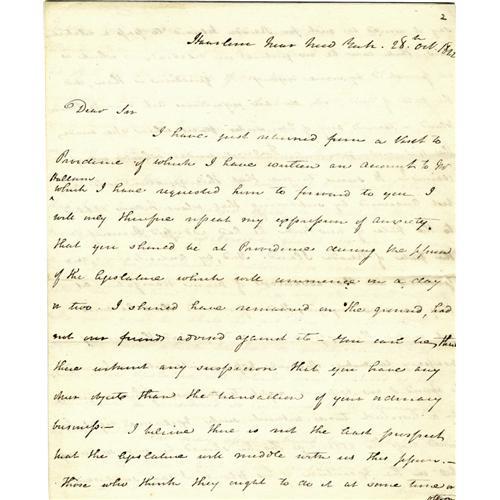 2
Haarlem Near New York. 28th Oct. 182
Dear Sir
I have just returned from a Visit to
Providence of which I have written an account to Mr
Pulteam
which I have requested him to forward to you I
will only therefore repeat my expression of anxiety
that you should be at Providence during the session
of the Legislature which will commence in a day
or two. I should have remained on the ground, had
not our friends advised against it - You can be there
there without any suspicion that you have any
other objects than the transaction of your ordinary
business. - I believe there is not the least prospect
that the Legislature will meddle with us this session. -
Those who think they ought to do it at some time or